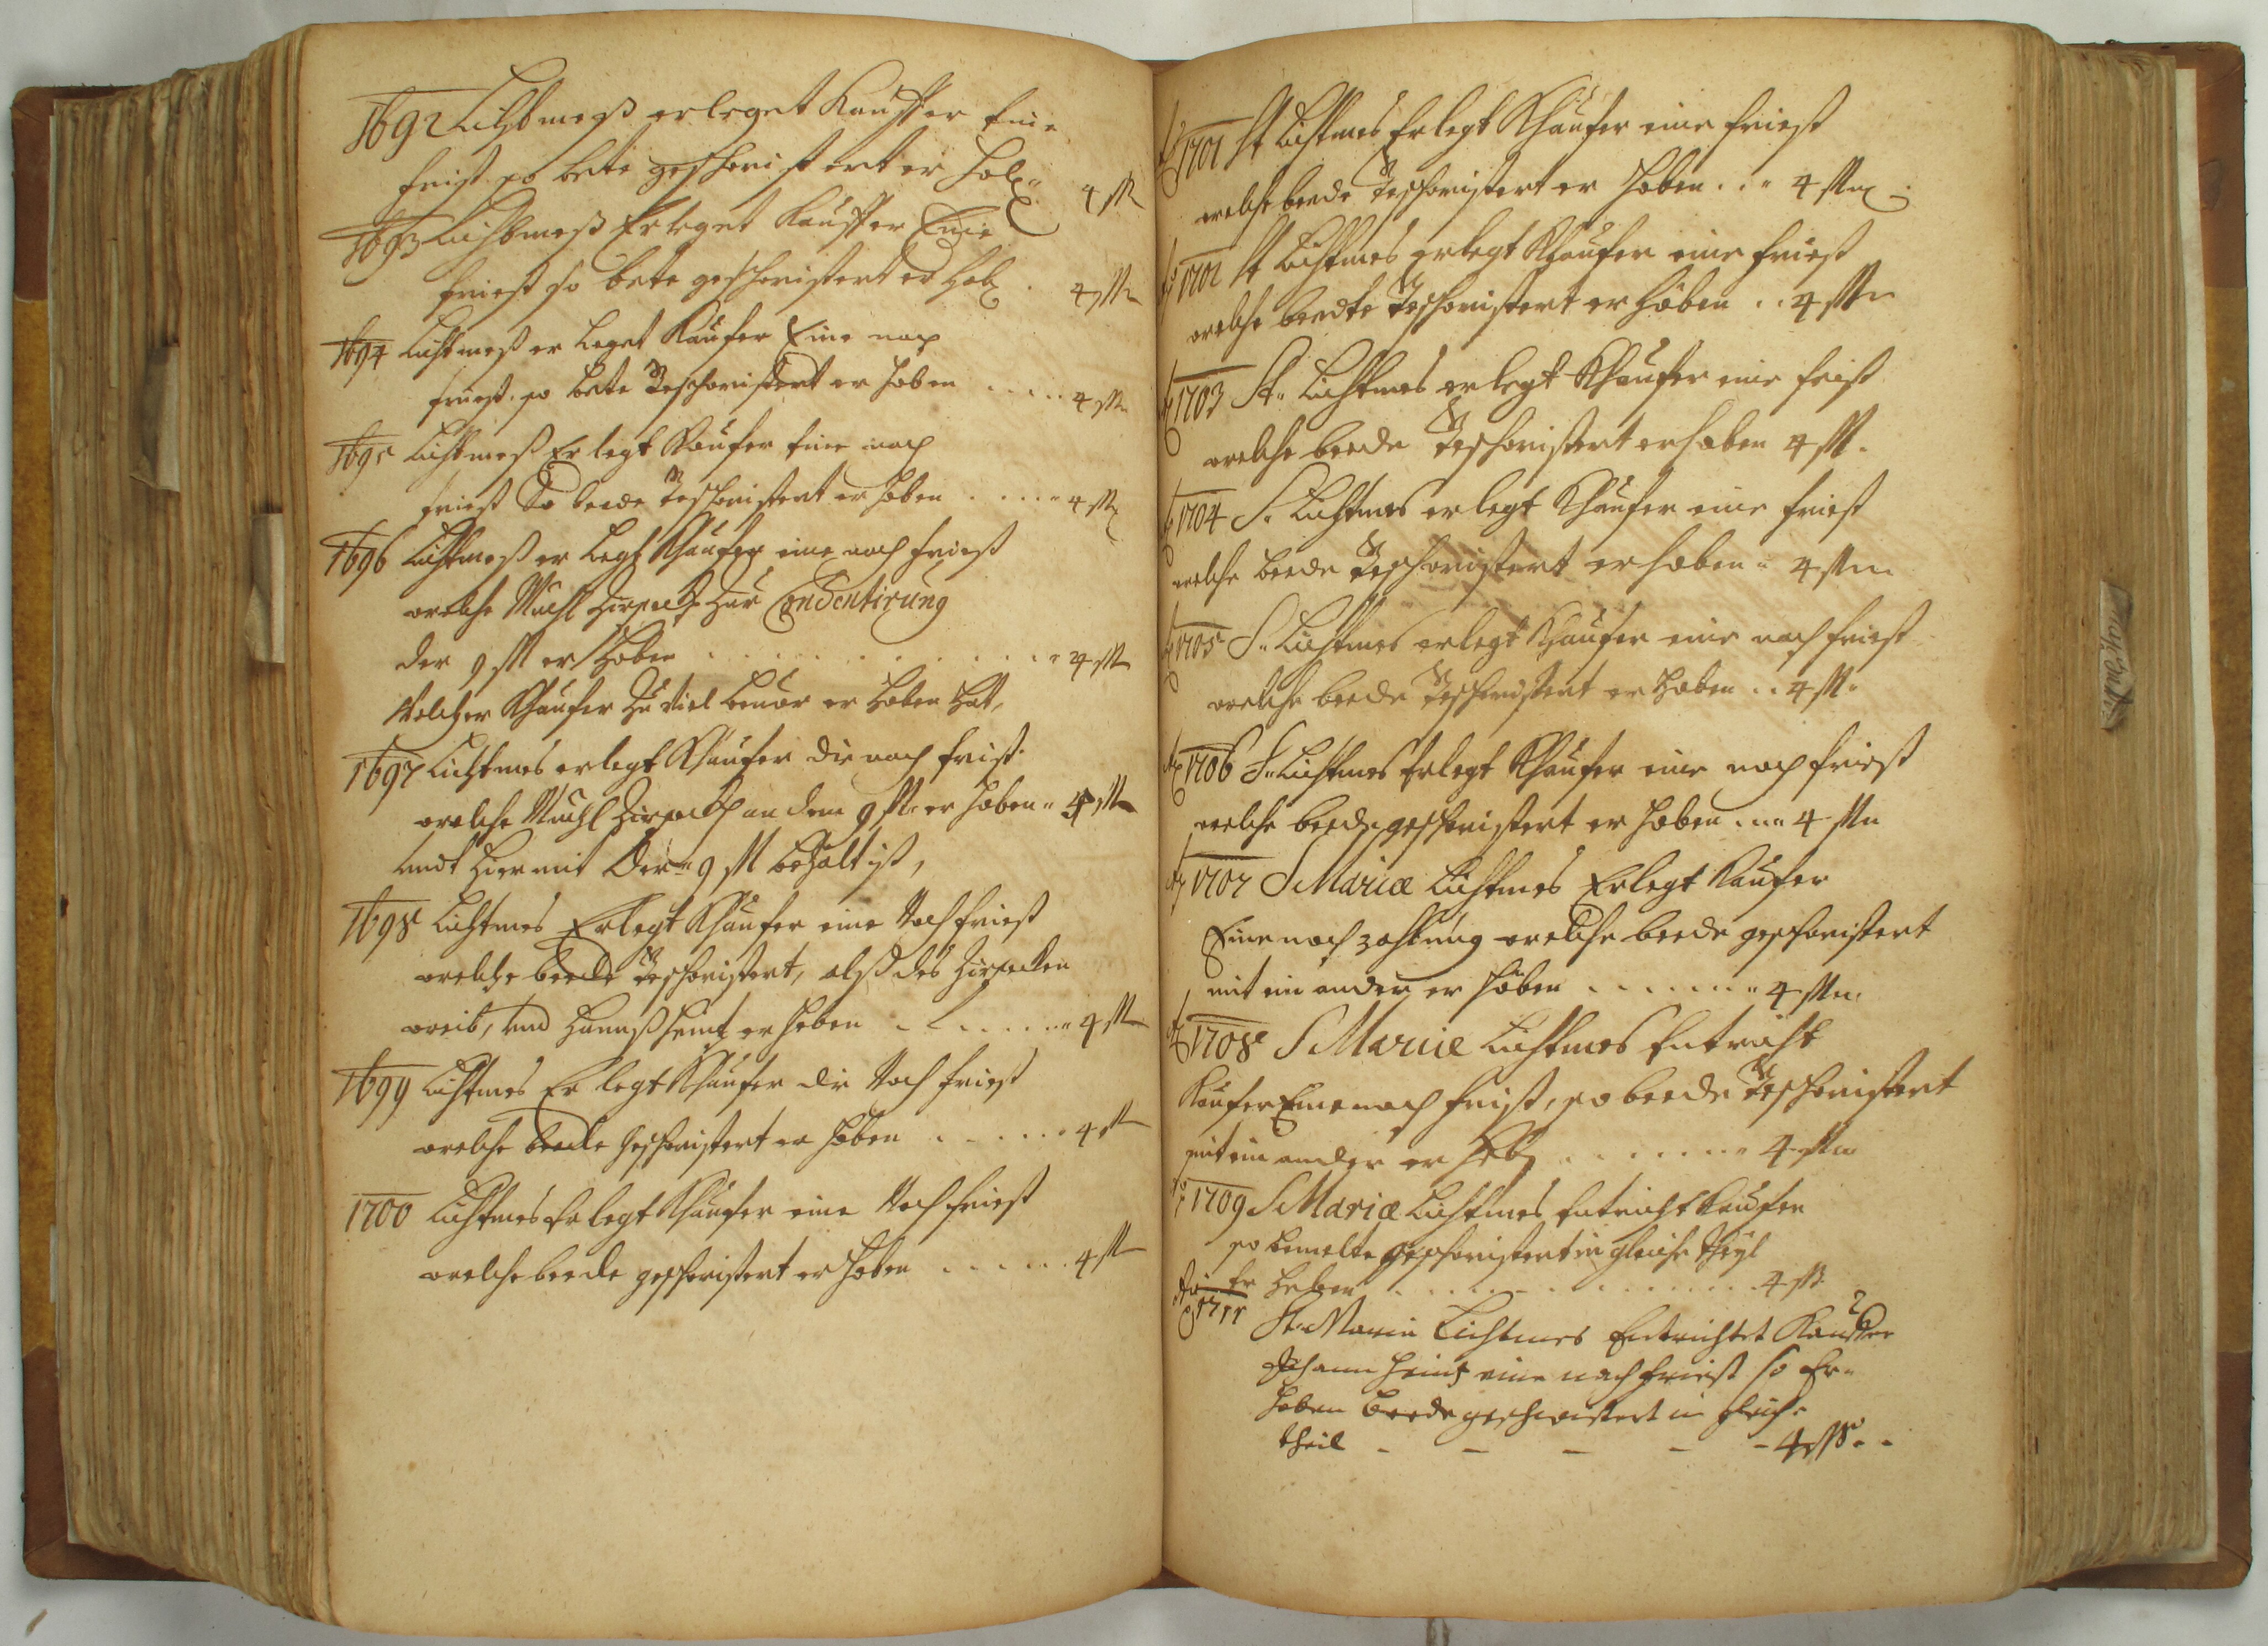 1692 Lichtmeß erleget Kauffer Eine
frist so bete geschwistert er hob
4 ß
1693 Lichtmeß Erleget Kauffer Eine
friest so bete geschwistert er hob . 4 ß
1694 Lichtmeß er Leget Kaufer Eine nach
friest. so bete Geschwistert er hoben . . . . . 4 ß
1695 Lichtmeß Er legt Kaufer Eine nach
friest So beede Geschwistert er hoben . . . . . 4 ß
1696 Lichtmeß er Legt Khaufer eine nach friest
welche zur Contentirung
der 9 ß er hoben . . . . . . . . . . 4 ß
Welcher Khaufer Zu viel bevor er hoben hat,
1697 Lichtmes erlegt Khaufer die nach frist.
welche an dem 9 ß er hoben 4 ß
undt hiermit Der 9 ß bezalt ist,
1698 Lichtmes Erlegt Khaufer eine Nach friest
welche beede Geschwistert, alß des
weib, und Hannß Heintz er hoben . . . . . . 4 ß
1699 Lichtmes Er legt Khaufer die Nach friest
welche beede Geschwistert er hoben . . . . . 4 ß
1700 Lichtmes Er legt Khaufer eine Nach friest
welche beede geschwistert er hoben . . . . . 4 ß
1701 St Lichtmes Erlegt Khaufer eine friest
welche beede Geschwistert er hoben . . . 4 ß
1702 St Lichtmes erlegt Khaufer eine friest
welche beedte Geschwistert er hoben . . 4 ß
1703 St. Lichtmes erlegt Khaufer eine frist
welche beede Geschwistert erhoben 4 ß.
1704 S. Lichtmes erlegt Khaufer eine friest
welche beede Geschwistert erhoben 4 ß
1705 S. Lichtmes erlegt Khaufer eine nach friest
welche beede Geschwistert er hoben . . 4 ß.
1706 S. Lichtmes Erlegt Khaufer eine nach friest
welche beede geschwistert er hoben . . . 4 ß
1707 S Mariæ Lichtmes Erlegt Kaufer
Eine nach zahlung welche beede geschwistert
mit ein ander er hoben . . . . . . . 4 ß
1708 S Mariæ Lichtmes Entricht
Kaufer Eine nach frist, so beede Geschwistert
mit ein ander er hob . . . . . . . 4 ß
1709 S Mariæ Lichtmes Entricht Kaufer
so bemelte geschwistert in gleiche Theyl
Er heben . . . . . . . . . . 4 ß
1711 St. Maria Lichtmes Entrichtet Kauffer
Johann Heintz eine nach friest so Er-
hoben beede geschwistert in gleich
theil - - - - - 4 ß